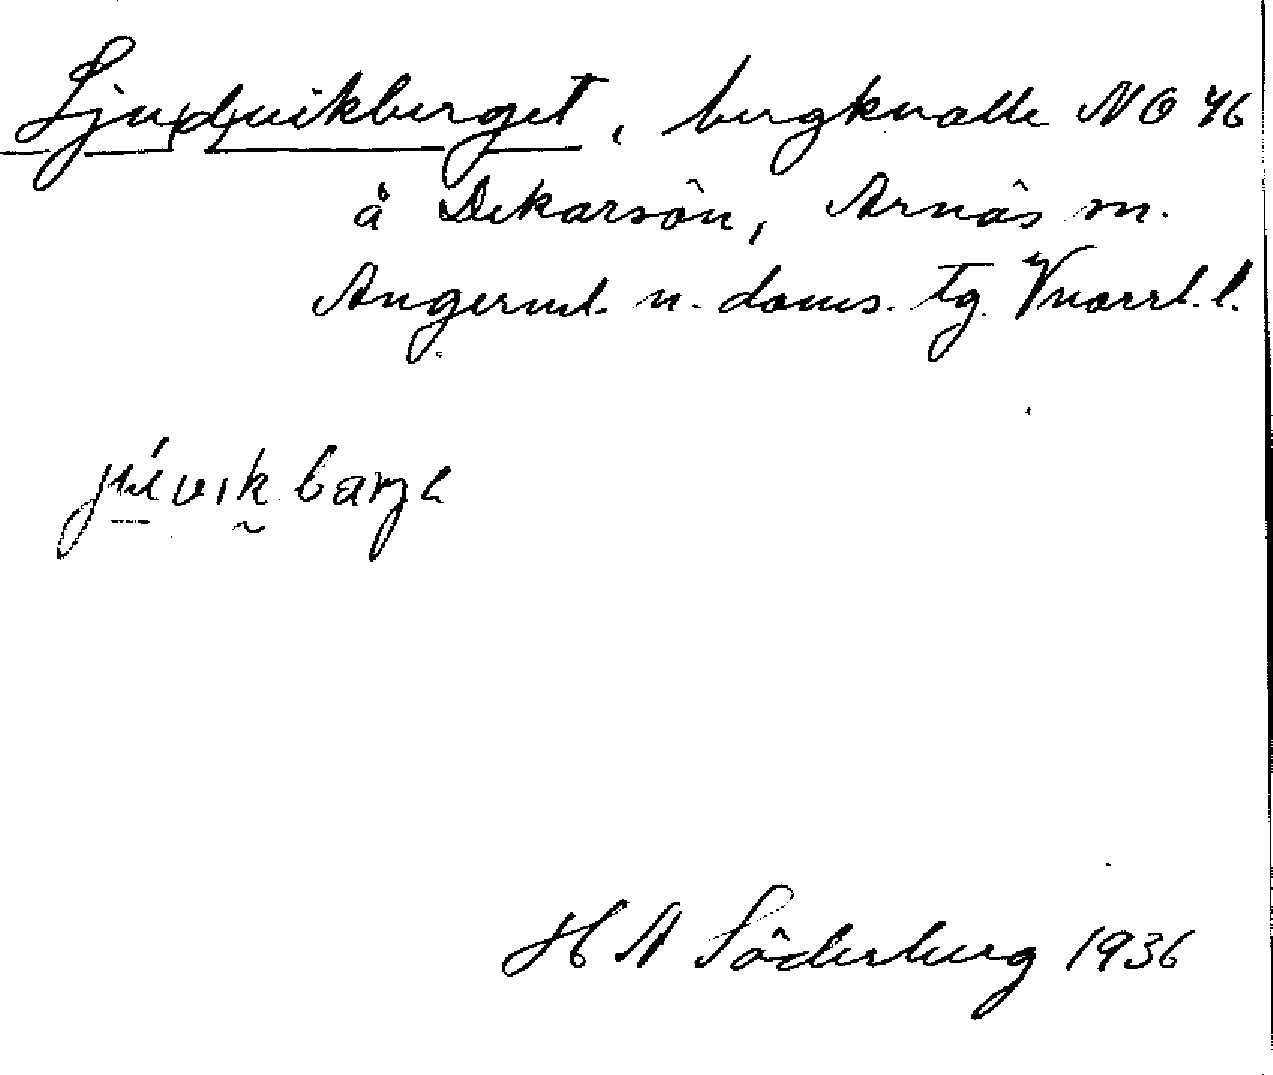 Lju(d)vikberget, bergknalle NO 46
å Dekarsön, Arnäs sn.
Angerml. n. doms. tg. Vnorrl. l.
H A Söderberg 1936